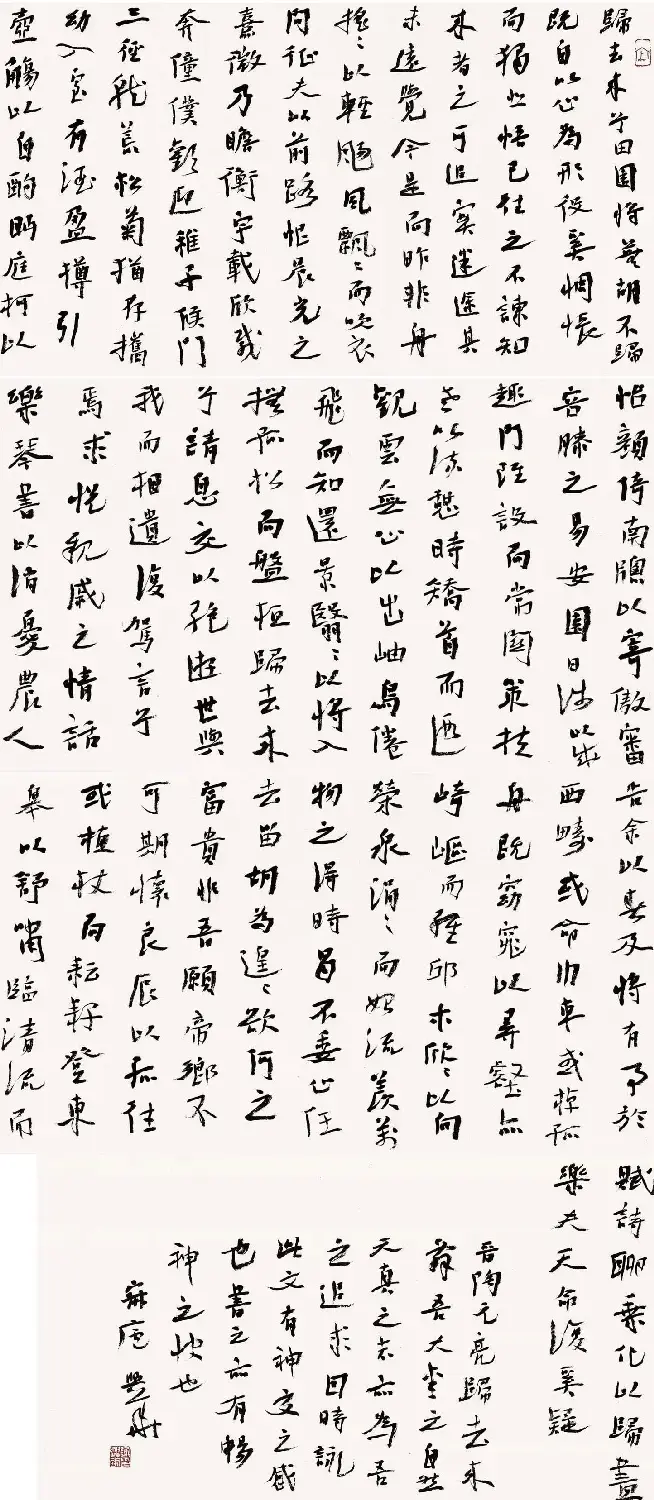 歸去來兮田園將蕪胡不歸
既自以心為形役奚惆悵
而獨悲悟已往之不諫知
來者之可追實迷途其
未遠覺今是而昨非舟
搖〻以輕颺風飄〻而吹衣
問征夫以前路恨晨光之
熹微乃瞻衡宇載欣載
奔僮僕歡迎稚子候門
三徑就荒松菊猶存攜
幼入室有酒盈樽引
壺觴以自酌眄庭柯以
怡顏倚南牕以寄傲審
容膝之易安園日涉以成
趣門雖設而常關策扶
老以流憩時矯首而遐
觀雲無心以出岫鳥倦
飛而知還景翳〻以將入
撫孤松而盤桓歸去來
兮請息交以絕遊世與
我而相遺復駕言兮
焉求悅親戚之情話
樂琴書以消憂農人
告余以春及將有事於
西疇或命巾車或棹孤
舟既窈窕以尋壑亦
崎嶇而經邱木欣〻以向
榮泉涓〻而始流羨萬
物之得時曷不委心任
去留胡為遑〻欲何之
富貴非吾願帝鄉不
可期懷良辰以孤往
或植杖而耘耔登東
皋以舒嘯臨清流而
賦詩聊乘化以歸盡
樂夫天命復奚疑
晉陶元亮歸去來
辭吾大愛之自然
天真之亦為吾
之追求因時詠
此文有神交之感
也書之亦有暢
神之快也